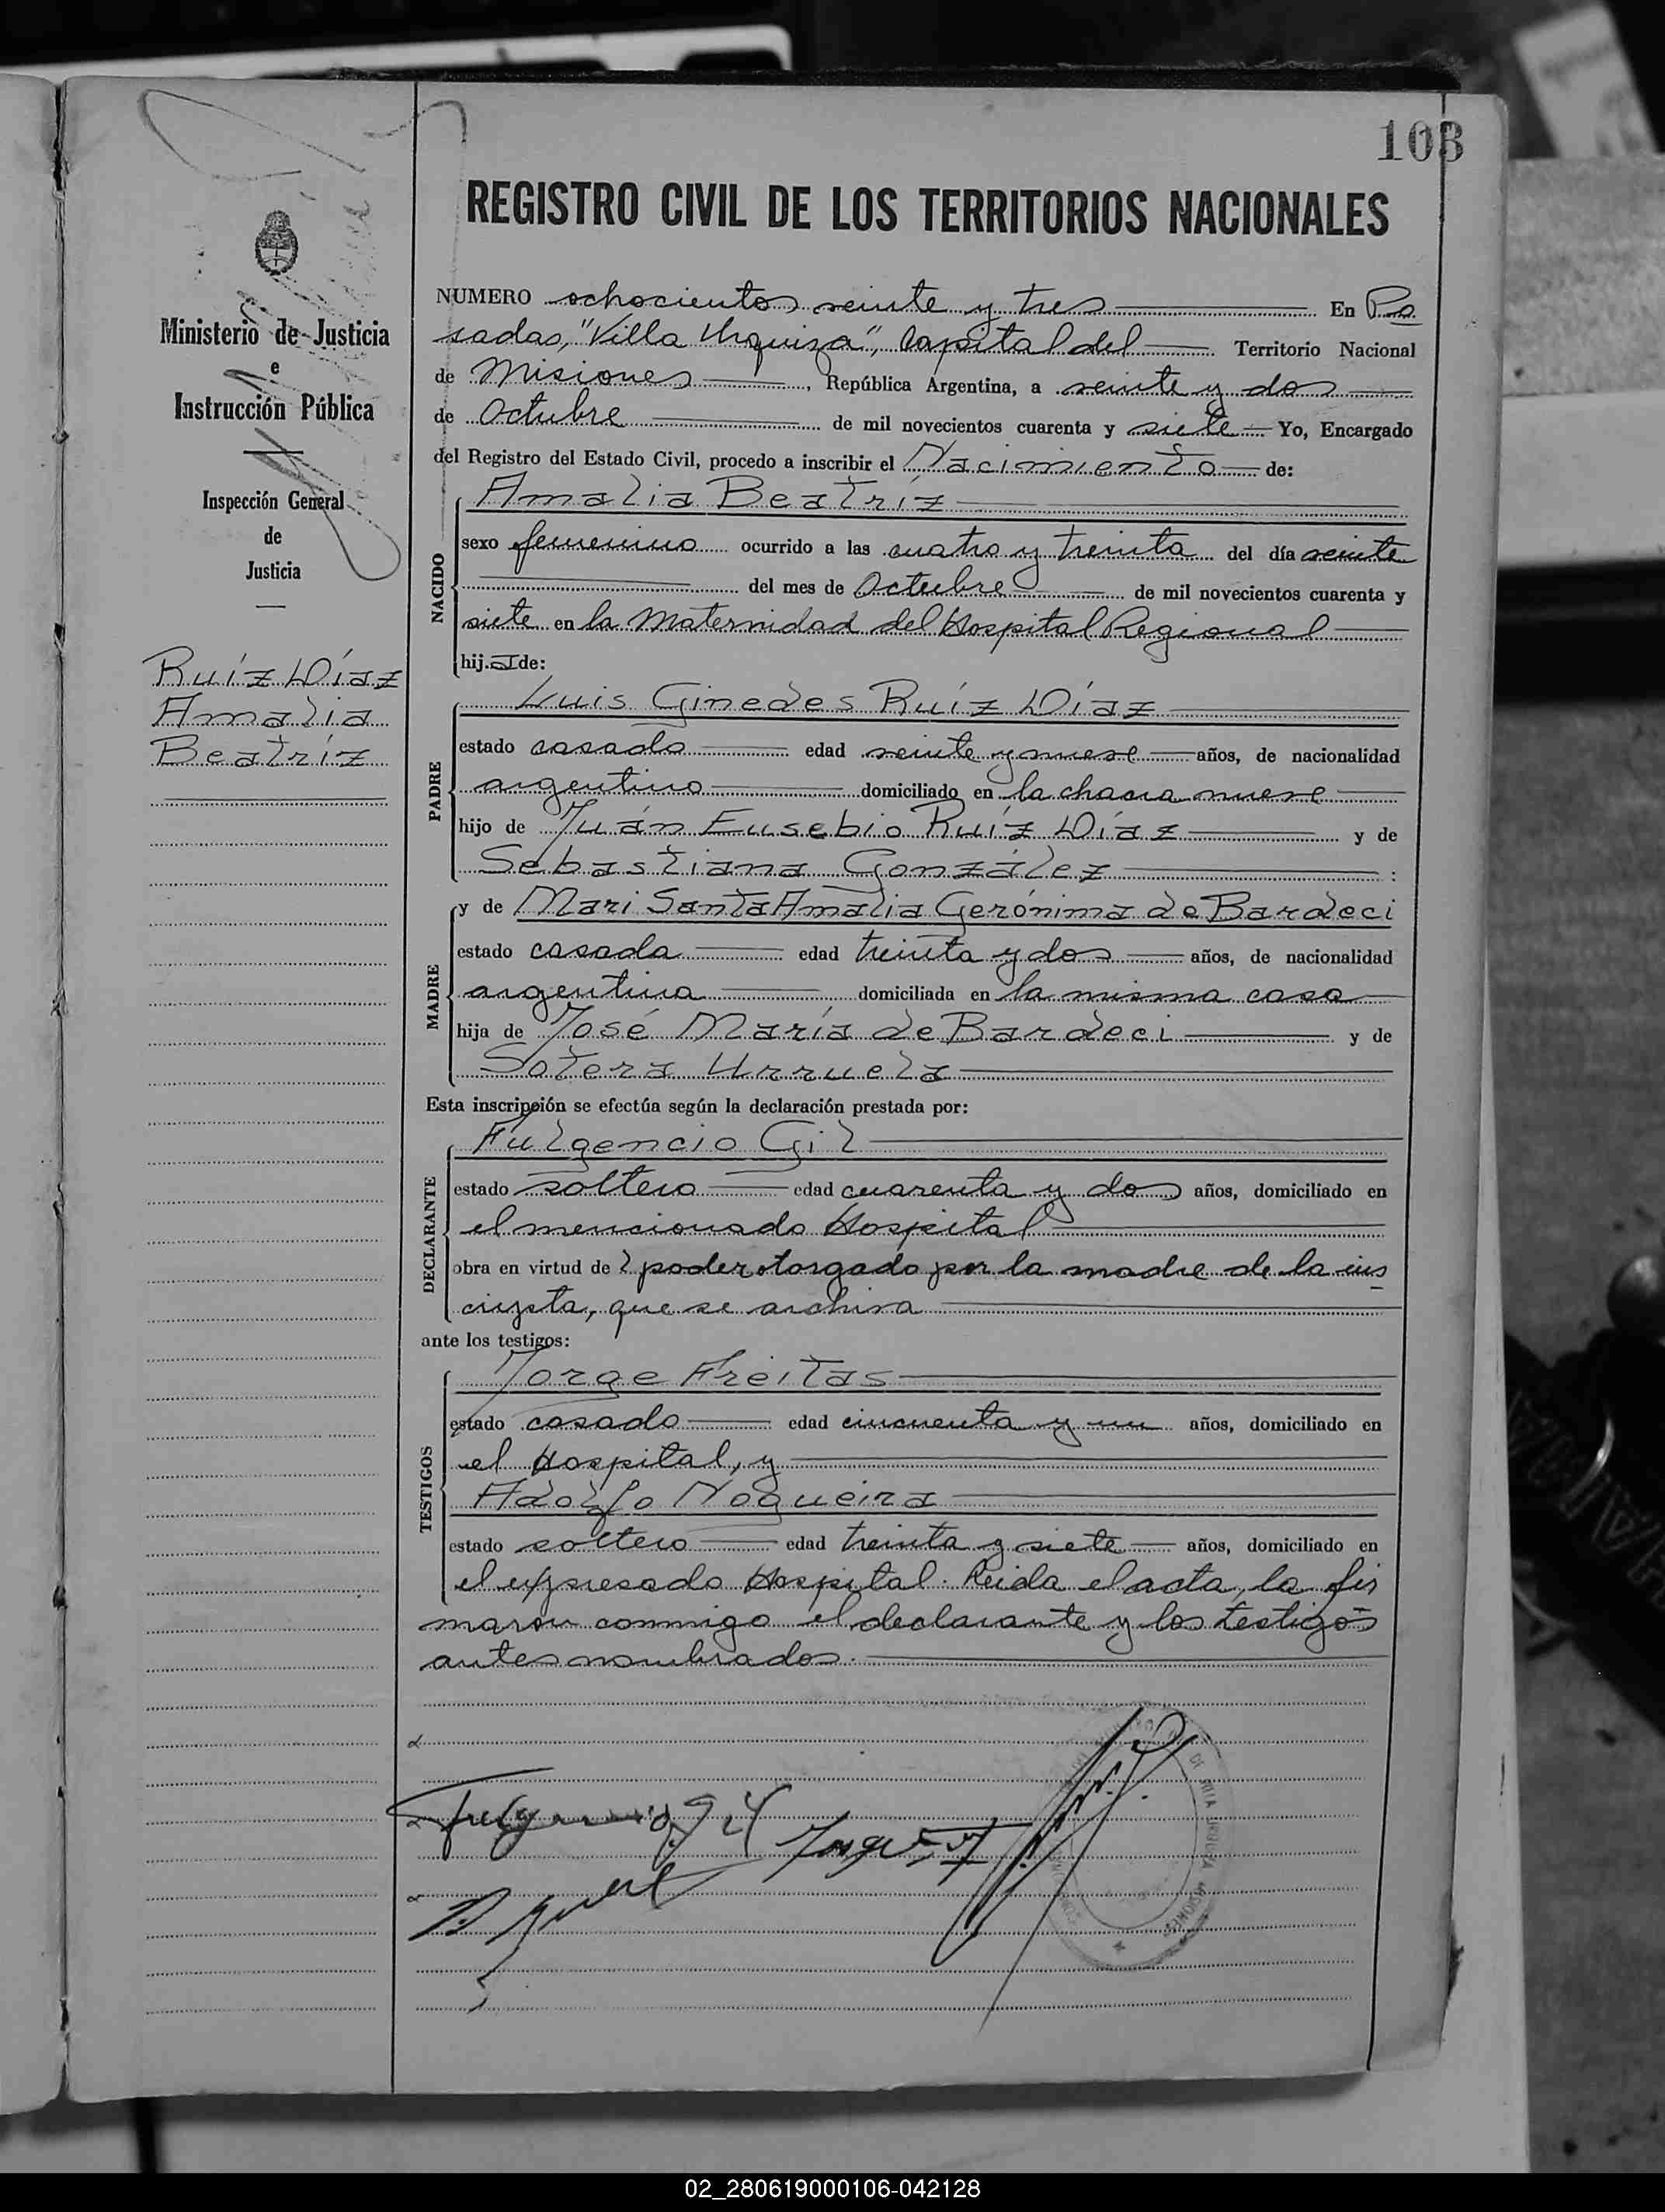 103
REGISTRO CIVIL DE LOS TERRITORIOS NACIONALES
Ministerio de Justicia
e
Instrucción Pública
Inspección General
de
Justicia
Ruíz Díaz
Amalia
Beatríz
NUMERO ochocientos veinte y tres En Po
sadas, "Villa Urquiza", Capital del Territorio Nacional
de Misiones, República Argentina, a veinte y dos
de Octubre de mil novecientos cuarenta y siete Yo, Encargado
del Registro del Estado Civil, procedo a inscribir el Nacimiento de:
NACIDO
Amalia Beatríz
sexo femenino ocurrido a las cuatro y treinta del día veinte
del mes de Octubre de mil novecientos cuarenta y
siete en la Maternidad del Hospital Regional
hija de:
PADRE
Luis Ginedes Ruíz Díaz
estado casado edad veinte y nueve años, de nacionalidad
argentino domiciliado en la chacra nueve
hijo de Juán Eusebio Ruíz Díaz y de
Sebastiana González :
MADRE
y de Mari Santa Amalia Gerónima de Bardeci
estado casada edad treinta y dos años, de nacionalidad
argentina domiciliada en la misma casa
hija de José María de Bardeci y de
Sotera Urruela
Esta inscripción se efectúa según la declaración prestada por:
DECLARANTE
Fulgencio Gil
estado soltero edad cuarenta y dos años, domiciliado en
el mencionado Hospital
obra en virtud del poder otorgado por la madre de la ins
cripta, que se archiva
ante los testigos:
TESTIGOS
Jorge Freitas
estado casado edad cincuenta y un años, domiciliado en
el Hospital, y
Adolfo Nogueira
estado soltero edad treinta y siete años, domiciliado en
el expresado Hospital. Leida el acta, la fir
maron conmigo el declarante y los testigos
antes nombrados.
Fulgencio Gil
02_280619000106-042128